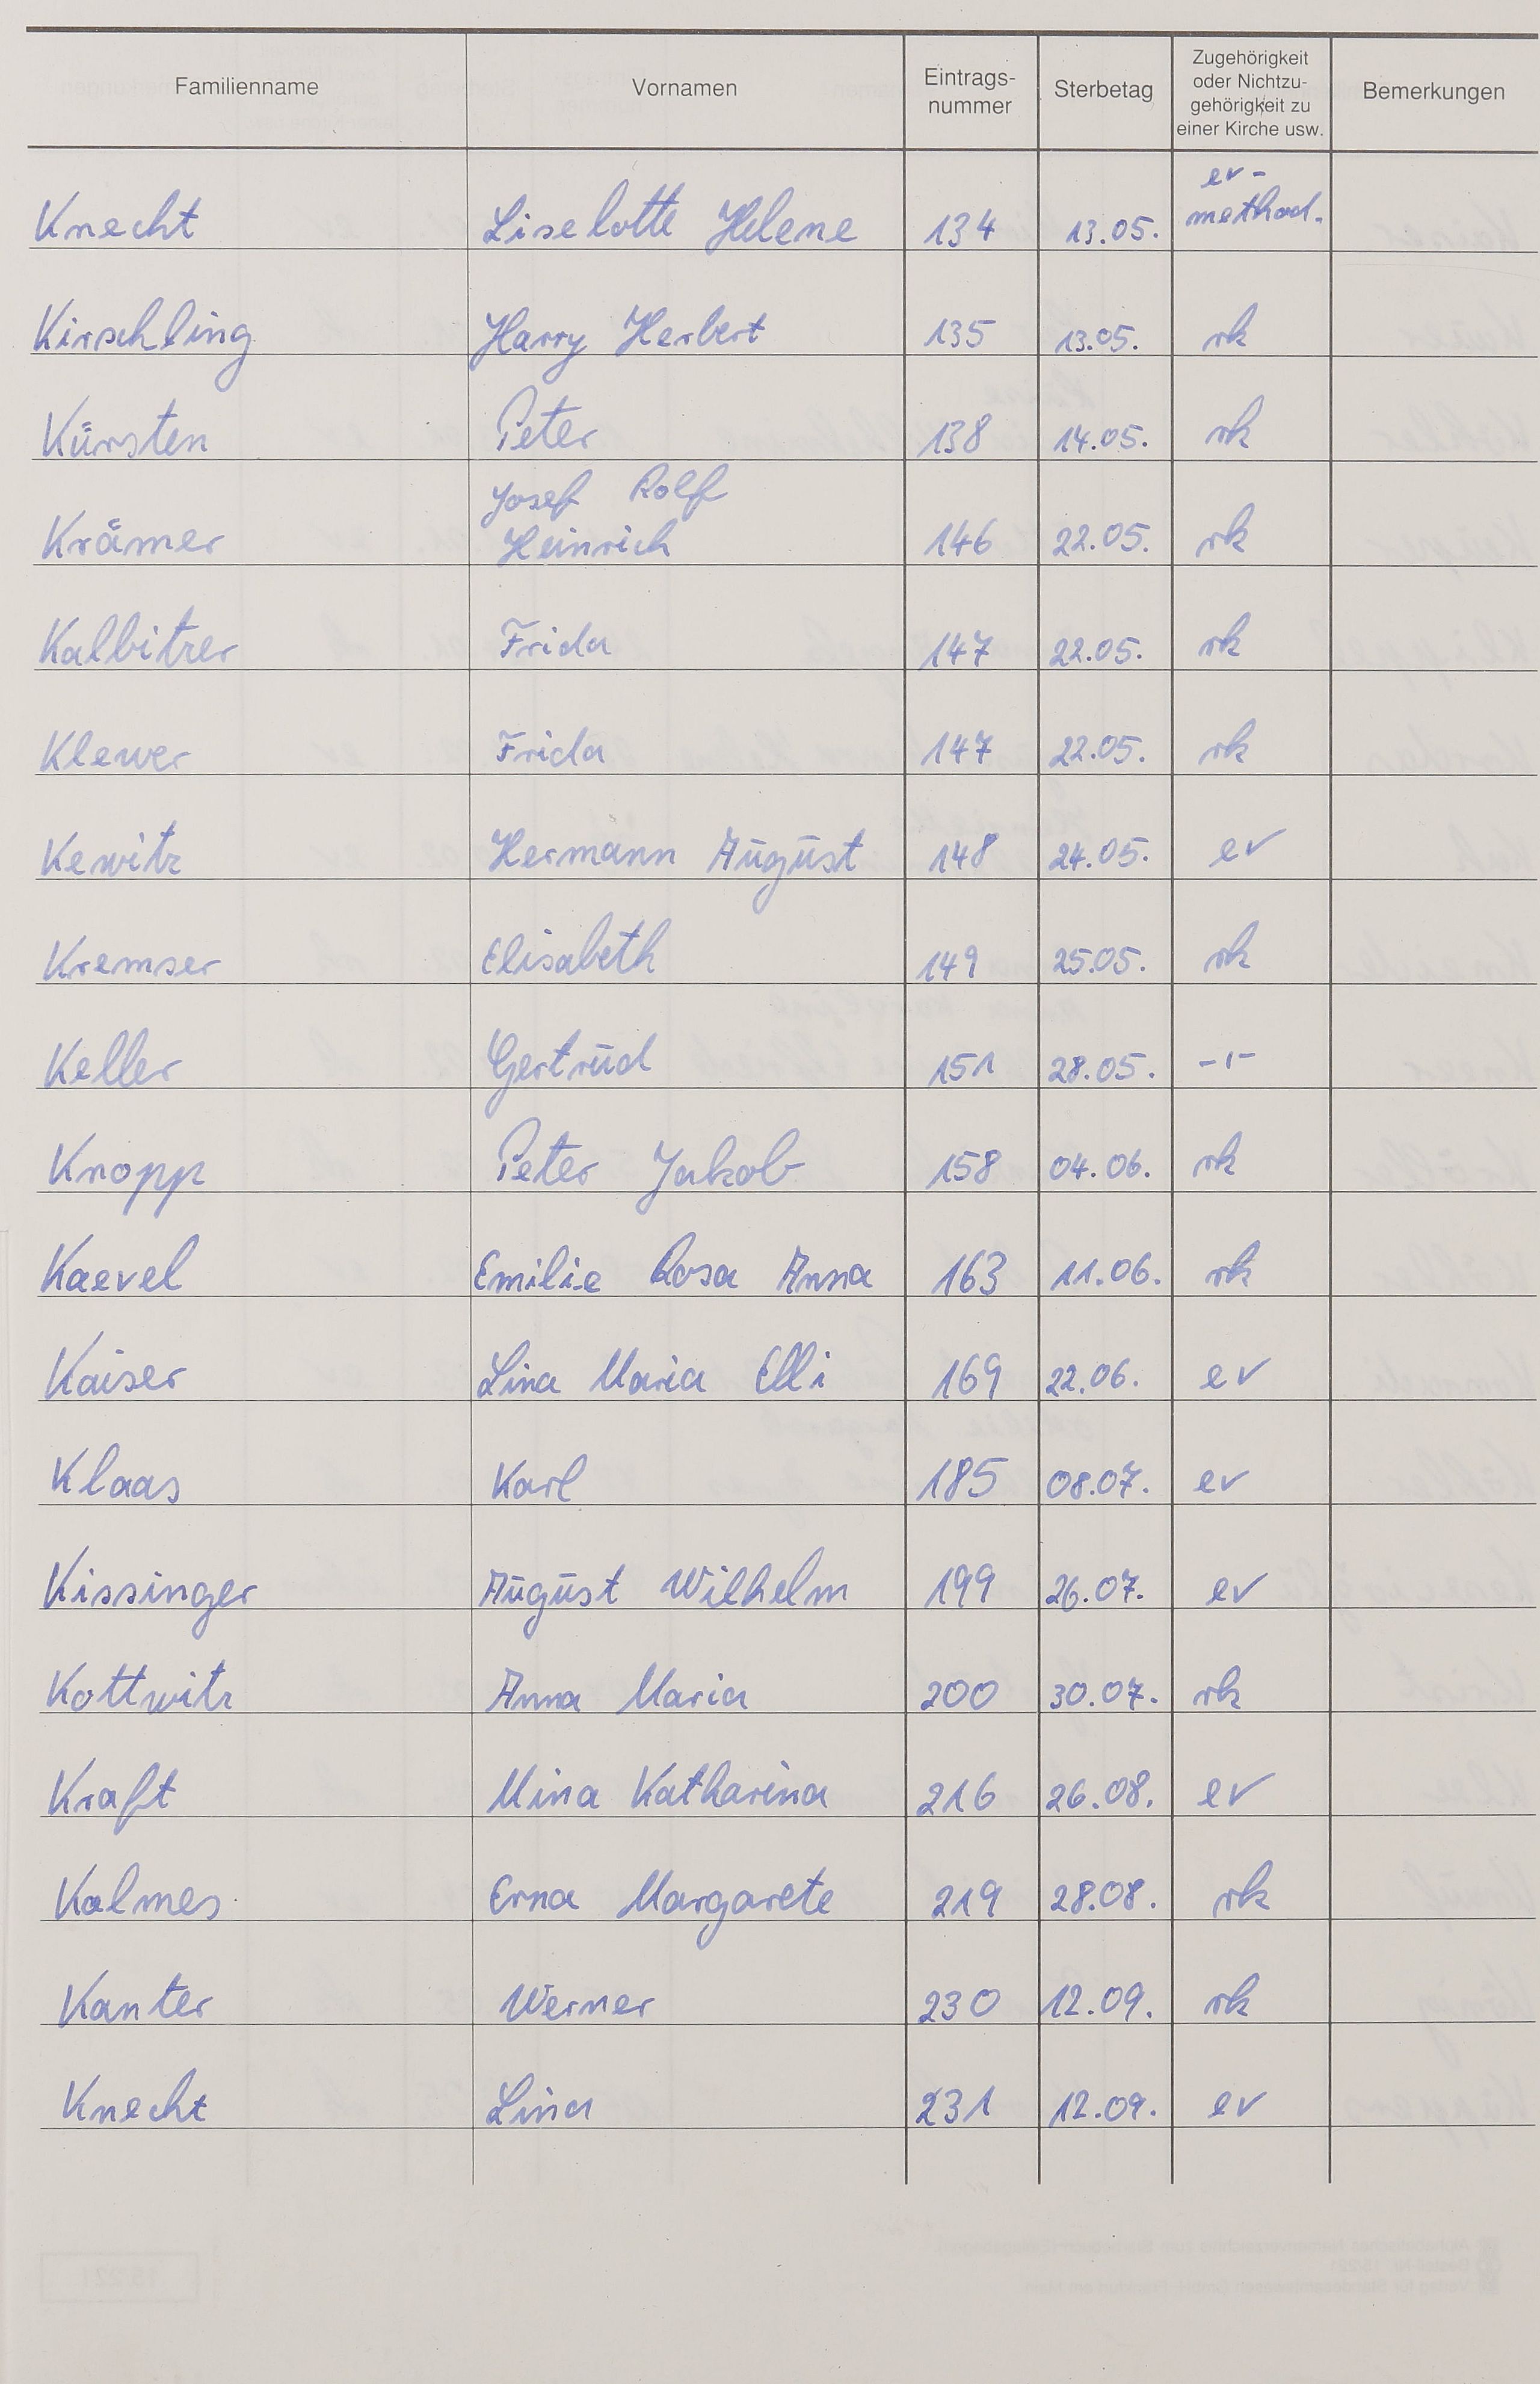 Familienname Vornamen Eintrags-nummer Sterbetag Zugehörigkeit oder Nichtzu-gehörigkeit zu einer Kirche usw. Bemerkungen
Knecht Liselotte Helene 134 13.05. ev-method.
Kirschling Harry Herbert 135 13.05. rk
Kürsten Peter 138 14.05. rk
Josef Rolf
Krämer Heinrich 146 22.05. rk
Kalbitzer Frida 147 22.05. rk
Klewer Frida 147 22.05. rk
Kewitz Hermann August 148 24.05. ev
Kremser Elisabeth 149 25.05. rk
Keller Gertrud 151 28.05. -1-
Knopp Peter Jakob 158 04.06. rk
Kaevel Emilie Rosa Anna 163 11.06. rk
Kaiser Lina Maria Elli 169 22.06. ev
Klaas Karl 185 08.07. ev
Kissinger August Wilhelm 199 26.07. ev
Kottwitz Anna Maria 200 30.07. rk
Kraft Mina Katharina 216 26.08. ev
Kalmes Erna Margarete 219 28.08. rk
Kanter Werner 230 12.09. rk
Knecht Lina 231 12.09. ev